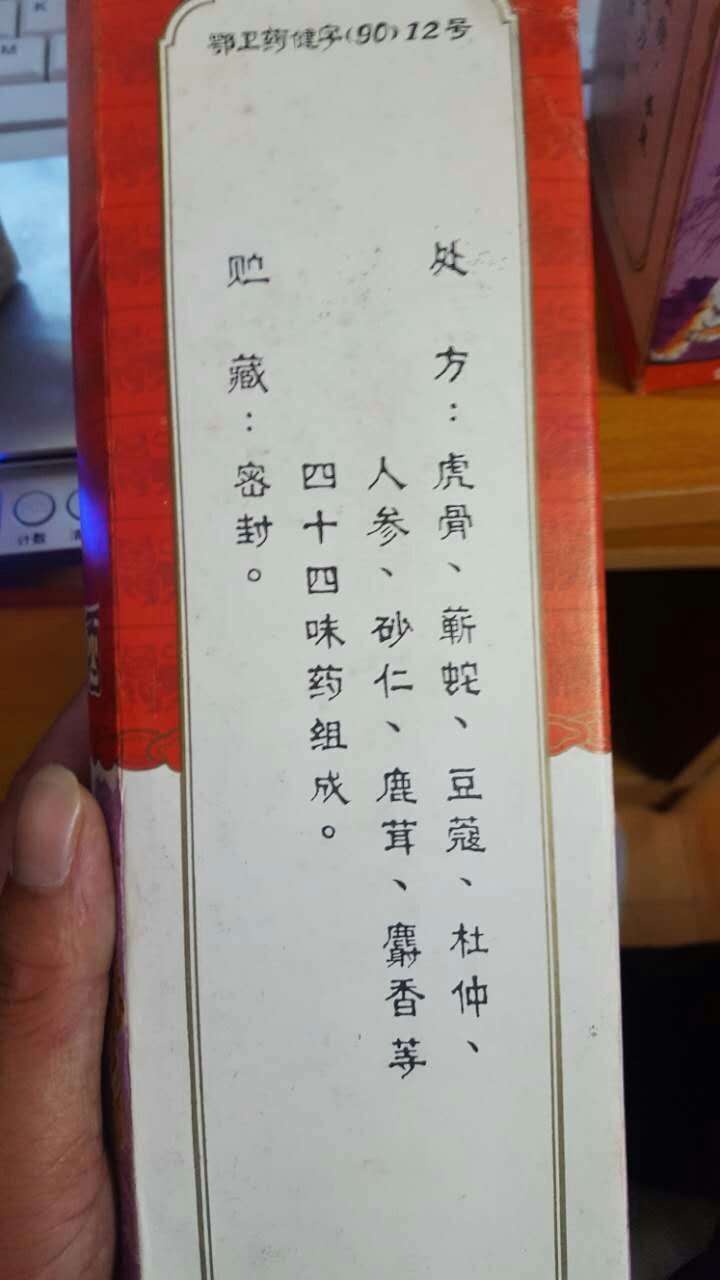 鄂卫药健字(90)12号
处方:虎骨、蕲蛇、豆蔻、杜仲、
人参、砂仁、鹿茸、麝香等
四十四味药组成。
贮藏:密封。
计数
K